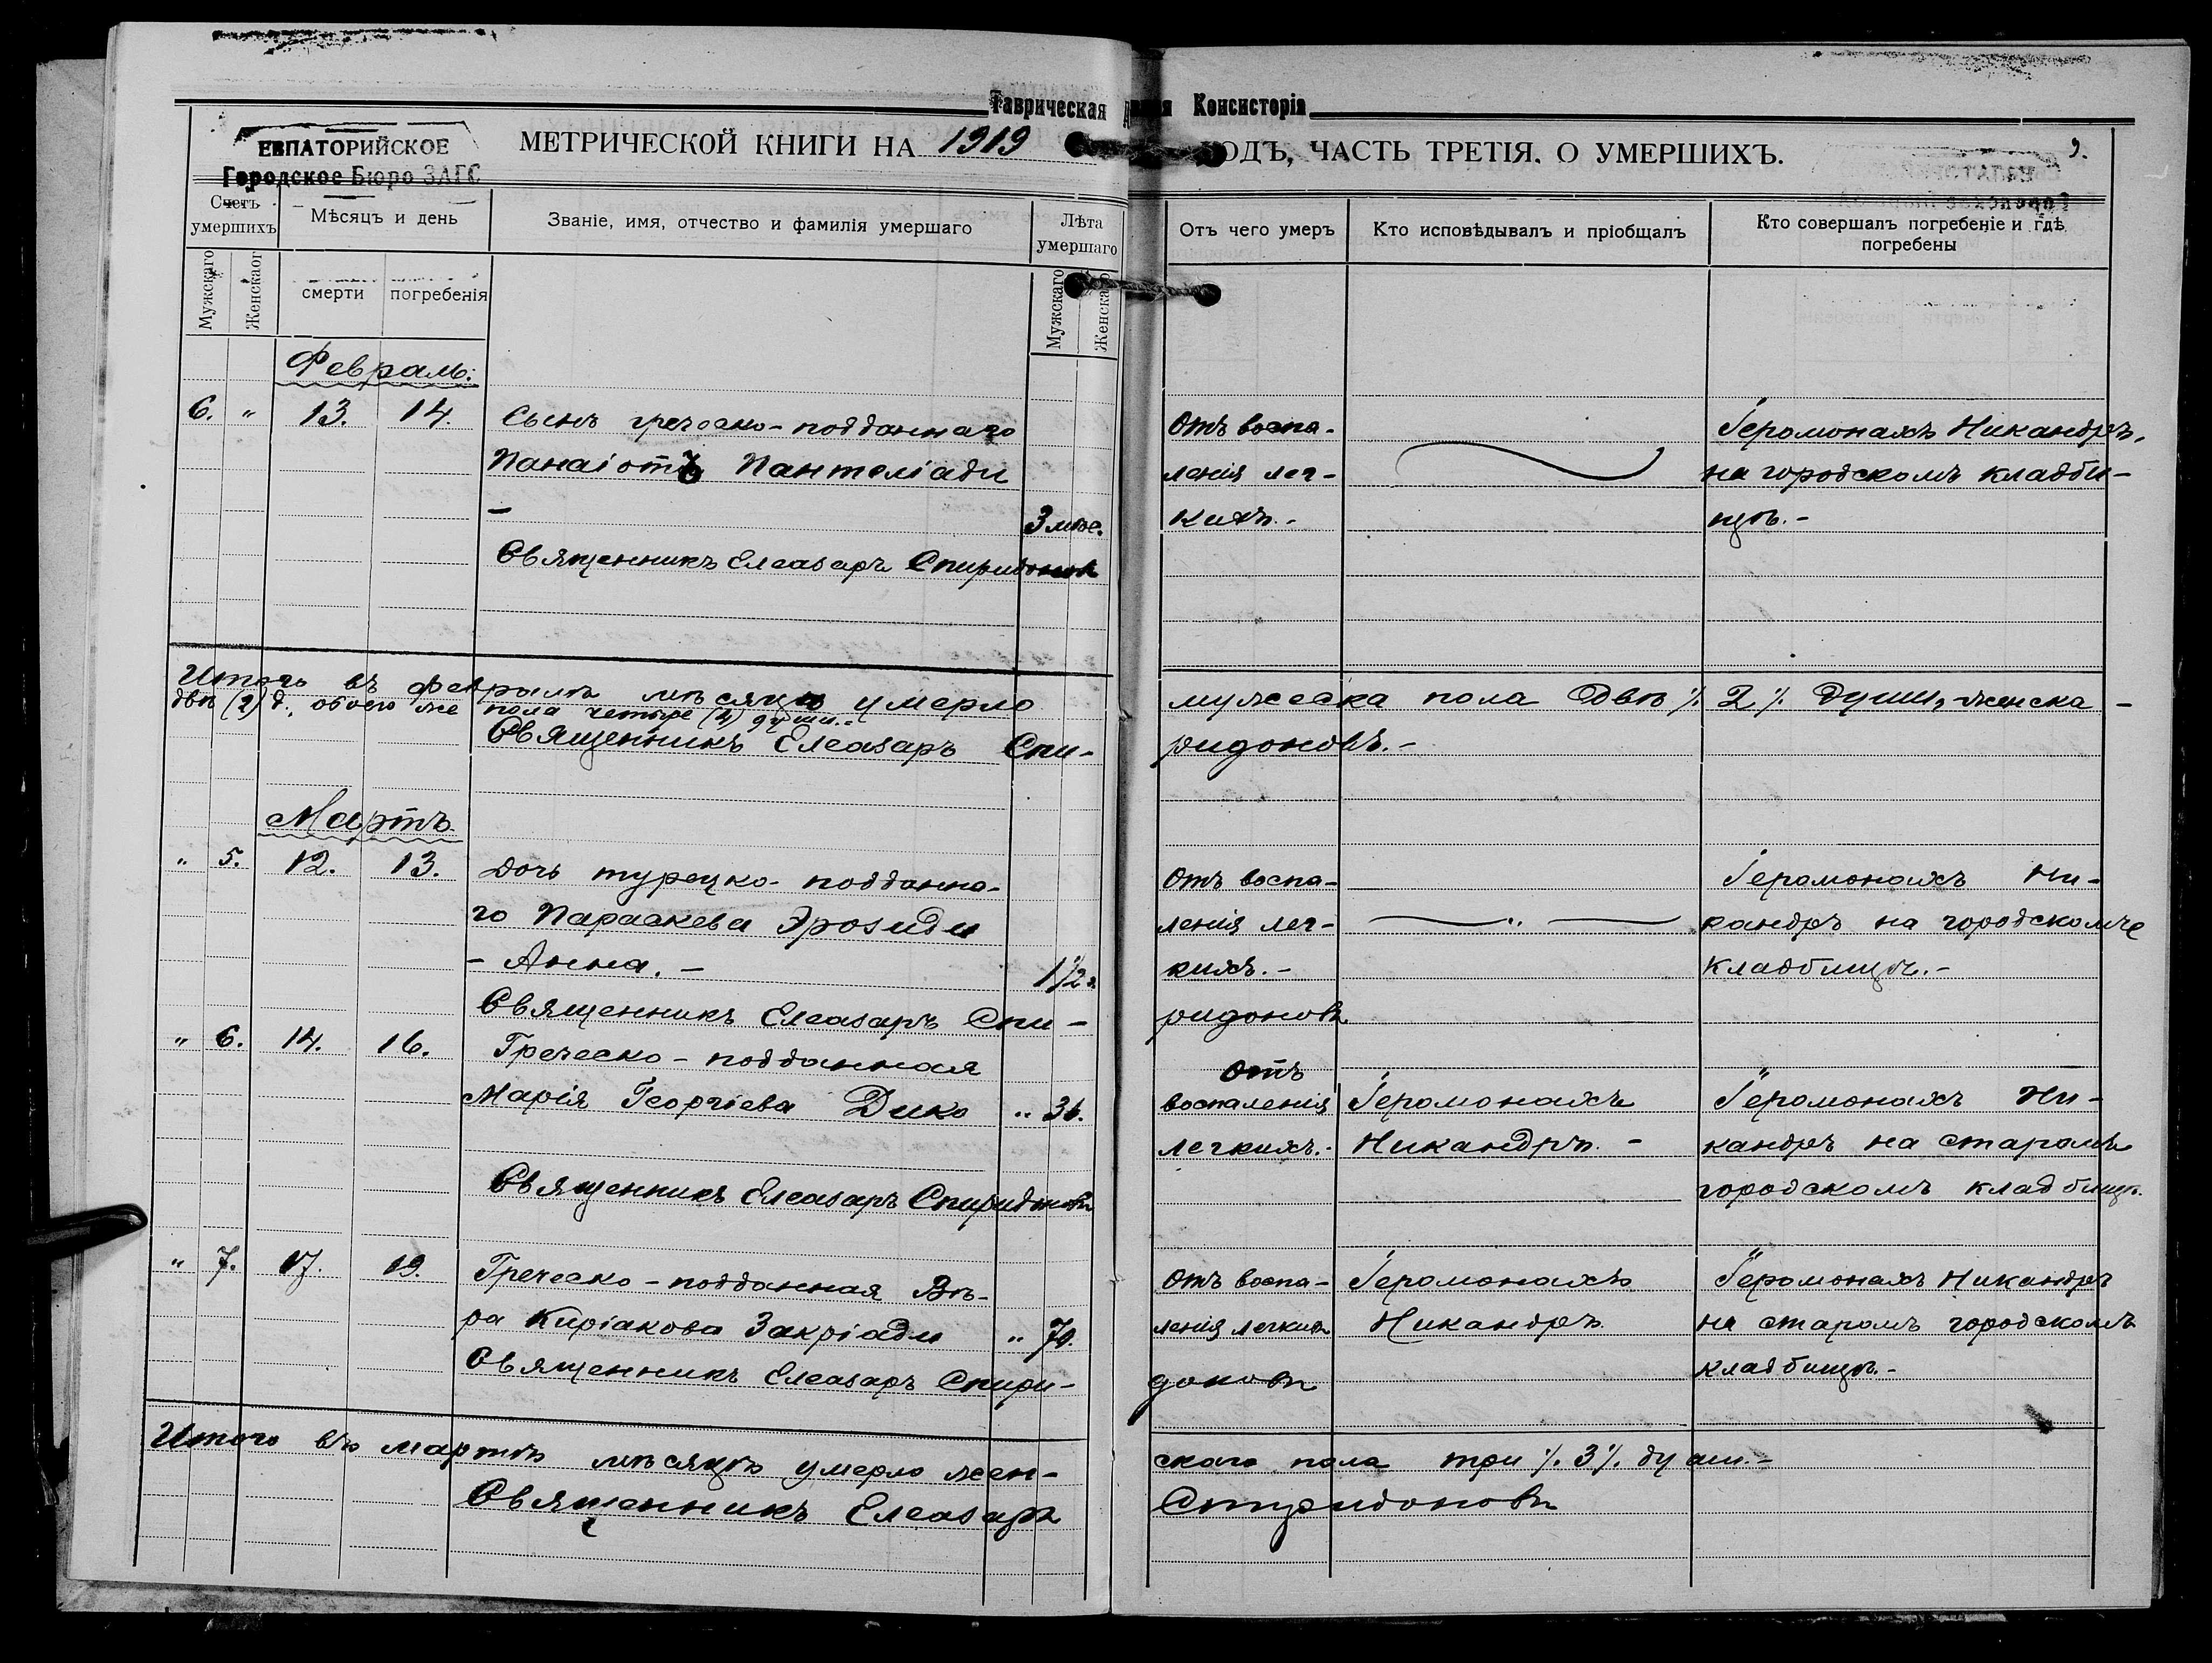 Таврическая Консисторія
ЕВПАТОРИЙСКОЕ
Городское Бюро ЗАГС
МЕТРИЧЕСКОЙ КНИГИ НА 1919 ГОДЪ, ЧАСТЬ ТРЕТІЯ. О УМЕРШИХЪ.
Счетъ умершихъ
Мѣсяцъ и день
Званіе, имя, отчество и фамилія умершаго
Лѣта умершаго
Отъ чего умеръ
Кто исповѣдывалъ и пріобщалъ
Кто совершалъ погребеніе и гдѣ
погребены
Мужскаго
Женскаог
смерти
погребенія
Мужскаго
Женскаго
Февраль.
6. " 13. 14.
Сынъ греческо-подданнаго
Панаіотъ Пантеліади
3 мѣс.
Отъ воспа-
ленія лег-
кихъ.-
Іеромонахъ Никандръ,
на городскомъ кладби-
щѣ.-
Священникъ Елеазаръ Спиридоновъ
Итого въ февралѣ мѣсяцѣ умерло мужеска пола двѣ ٪ 2 ٪ души, женска -
двѣ (2) д., обоего же пола четыре (4) души.-
Священникъ Елеазаръ Спи-
ридоновъ.-
Мартъ.
" 5. 12. 13.
Дочь турецко-подданна-
го Параскева Эрозиди
- Анна. -
1 1/2 г.
Отъ воспа-
ленія лег-
кихъ.-
Іеромонахъ Ни-
кандръ на городскомъ
кладбищѣ.-
Священникъ Елеазаръ Спи-
ридоновъ
" 6. 14. 16.
Греческо-подданная
Марія Георгіева Дико " 36.
Отъ
воспаленія
легкихъ.-
Іеромонахъ
Никандръ. -
Іеромонахъ Ни-
кандръ на старомъ
городскомъ кладбищѣ.
Священникъ Елеазаръ Спиридоновъ
" 7. 17. 19.
Греческо-подданная Вѣ-
ра Киріакова Закріади " 70.
Отъ воспа-
ленія легкихъ
Іеромонахъ
Никандръ
Іеромонахъ Никандръ
на старомъ городскомъ
кладбищѣ.-
Священникъ Елеазаръ Спири-
доновъ
Итого въ мартѣ мѣсяцѣ умерло жен-
скаго пола три ٪ 3 ٪ души.-
Священникъ Елеазаръ
Спиридоновъ